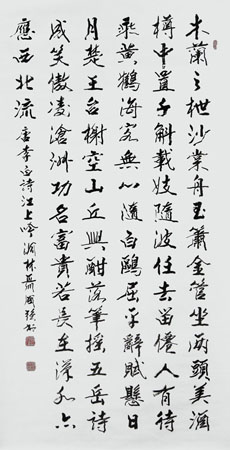 木蘭之枻沙棠舟玉簫金管坐兩頭美酒
樽中置千斛載妓隨波任去留僊人有待
乘黃鶴海客無心隨白鷗屈平辭賦懸日
月楚王台榭空山丘興酣落筆搖五岳詩
成笑傲凌滄洲功名富貴若長在漢水亦
應西北流 唐李白詩江上吟